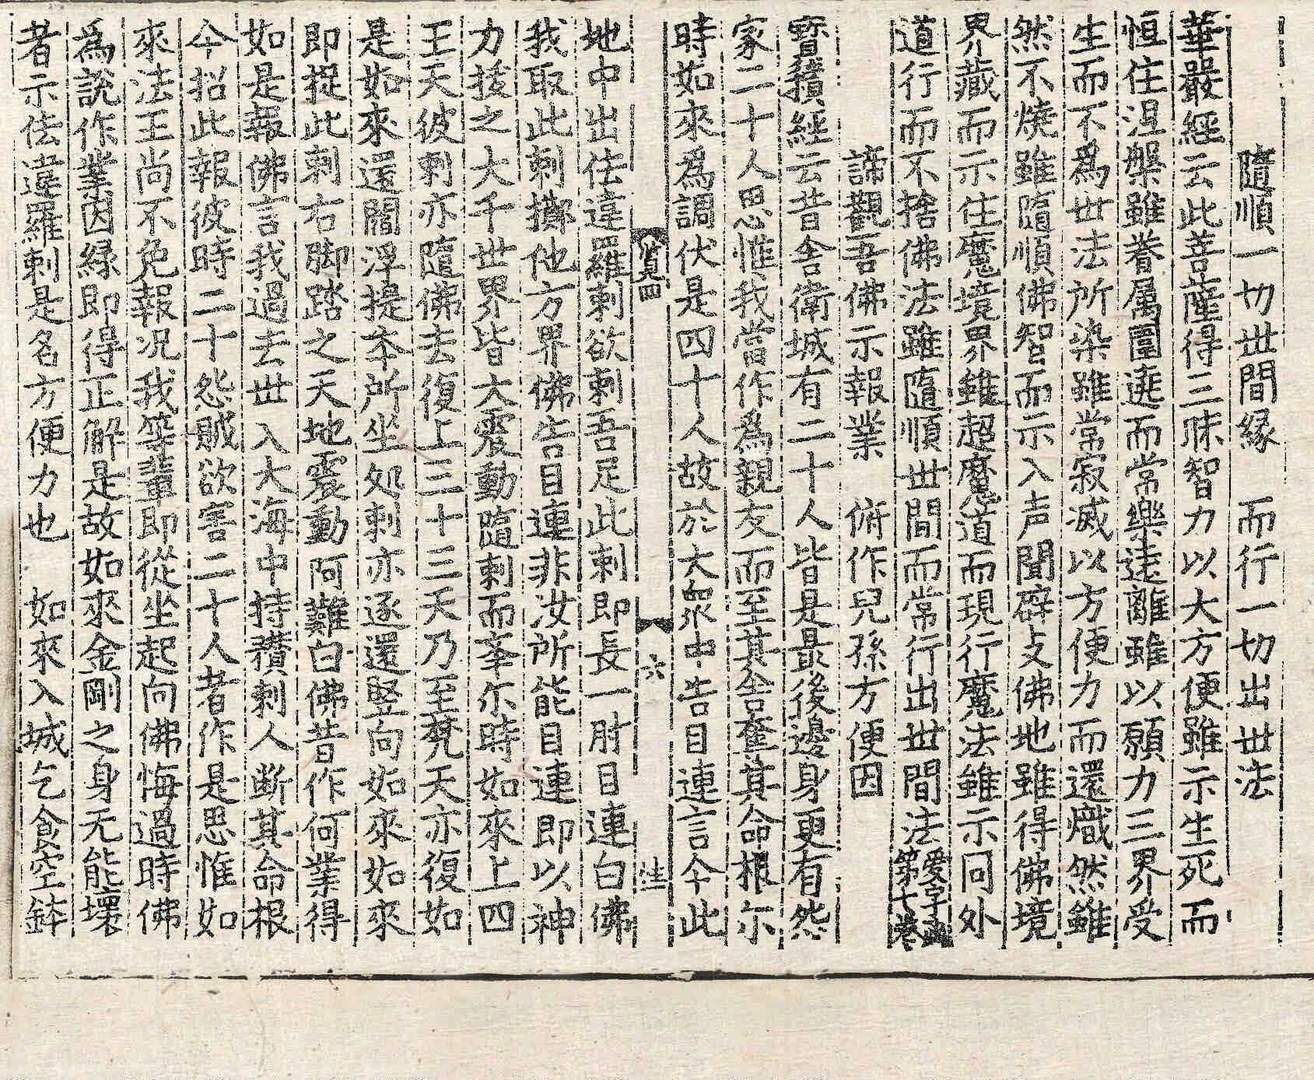 隨順一切世間緣　而行一切出世法
華嚴經云此菩薩得三昧智力以大方便雖示生死而
恒住涅槃雖眷属圍遶而常樂遠離雖以願力三界受
生而不為世法所染雖常寂滅以方便力而還熾然雖
然不燒雖隨順佛智而示入声聞辟支佛地雖得佛境
界藏而示住魔境界雖超魔道而現行魔法雖示同外
道行而不捨佛法雖隨順世間而常行出世間法愛字函第七卷
諦觀吾佛示報業　俯作兒孫方便因
寶積經云昔舍衛城有二十人皆是最後邊身更有怨
家二十人思惟我當作為親友而至其舍奪其命根尓
時如來為調伏是四十人故於大眾中告目連言今此
六
地中出佉違羅刺欲刺吾足此刺即長一肘目連白佛
我取此刺擲他方界佛告目連非汝所能目連即以神
力拔之大千世界皆大震動隨刺而舉尓時如來上四
王天彼刺亦隨佛去復上三十三天乃至梵天亦復如
是如來還閻浮提本所坐処刺亦逐還竪向如來如來
即捉此刺右脚踏之天地震動阿難白佛昔作何業得
如是報佛言我過去世入大海中持䂎刺人断其命根
今招此報彼時二十怨賊欲害二十人者作是思惟如
來法王尚不免報況我等輩即從坐起向佛悔過時佛
為說作業因緣即得正解是故如來金剛之身无能壞
者示佉違羅刺是名方便力也　如來入城乞食空鉢